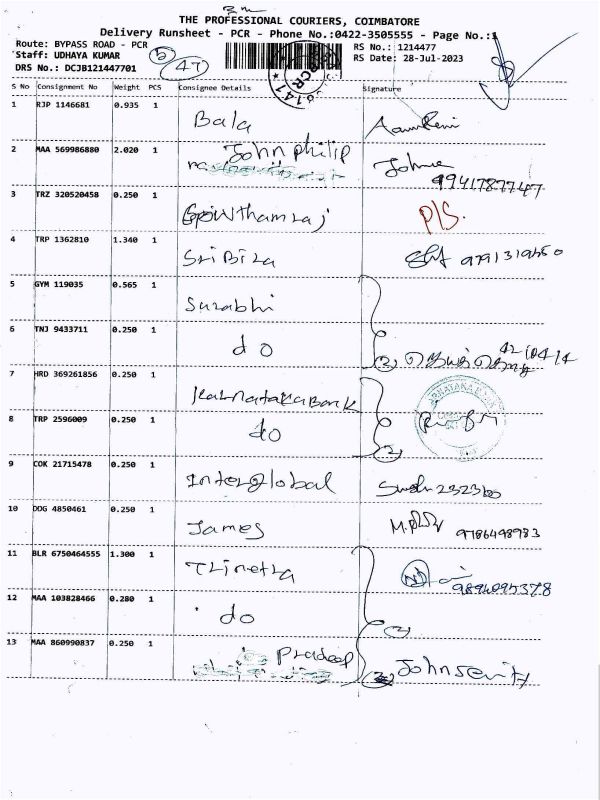 THE PROFESSIONAL COURIERS, COIMBATORE
Delivery Runsheet - PCR - Phone No.:0422-3505555 - Page No.:1
Route: BYPASS ROAD - PCR
RS No.: 1214477
Staff: UDHAYA KUMAR
RS Date: 28-Jul-2023
DRS No.: DCJB121447701
5
47
PCR
S No Consignment No Weight PCS Consignee Details Signature
1 RJP 1146681 0.935 1 Bala
2 MAA 569986880 2.020 1 John philip
9941787747
3 TRZ 320520458 0.250 1 Gowthamraj P/S.
4 TRP 1362810 1.340 1 Sri Biza
5 GYM 119035 0.565 1 Surabhi
6 TNJ 9433711 0.250 1 do 2
7 HRD 369261856 0.250 1 Karnataka Bank
8 TRP 2596009 0.250 1 do 2
9 COK 21715478 0.250 1 Interglobal
10 DDG 4850461 0.250 1 James 9786498983
11 BLR 6750464555 1.300 1 Trinetra
12 MAA 103828466 0.280 1 do 2
13 MAA 860990837 0.250 1 Pradeep